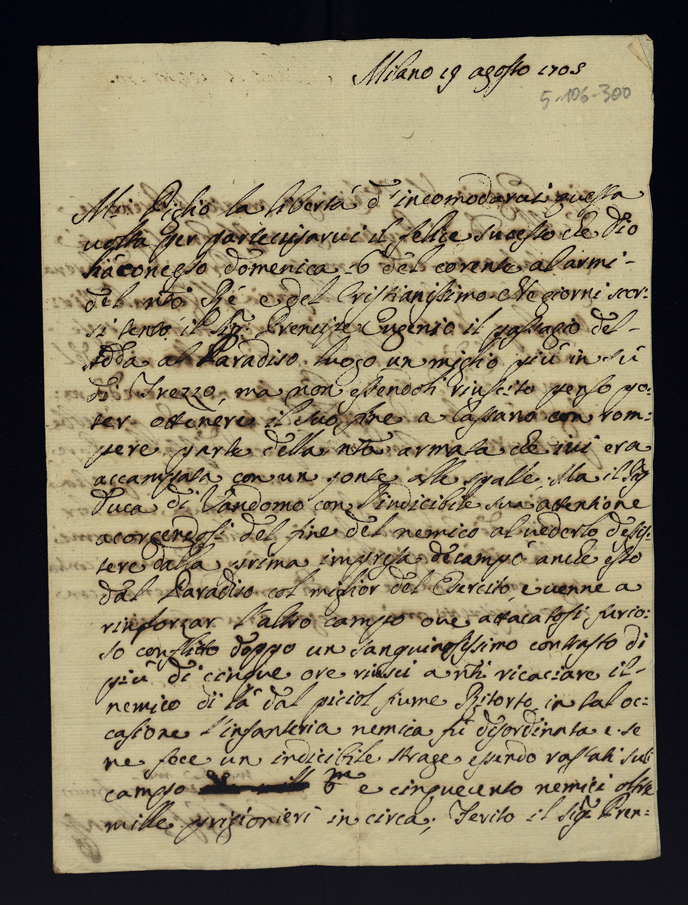 Milano 19 agosto 1705
5-106-300
Mi Piglio la libertà d'incomodarvi questa
volta per partecipparvi il felice sucesso che Dio
hà concesso domenica 16 del corente al armi-
del nro Rè e del Cristianissimo che giorni scor-
si tentò il Sigr Prencipe Eugenio il passagio del-
Adda al Paradiso luogo un miglio più in sù
di Trezzo, ma non essendoli riuscito pensò po-
ter ottenere il suo fine a Cassano con rom-
pere parte della nra armata che ivi era
accampata con un ponte alle spalle. Ma il Sigr
Duca di Vandomo con l'indicibile sua attentione
acorgendosi del fine del nemico al vederlo desis-
tere dalla prima impresa decampò anche esso
dal Paradiso col miglior del Esercito, e venne a
rinforzar l'altro campo ove attacatosi furio-
so conflitto doppo un sanguinosissimo contrasto di
più di cinque ore riuscì a nri ricacciare il-
nemico di là dal picciol fiume Ritorto, in tal oc-
casione l'infanteria nemica fù disordinata e se
ne fece un indicibile strage essendo restati sul
campo 6m e cinquecento nemici oltre
mille prigionieri in circa, Ferito il Sigr Pren-